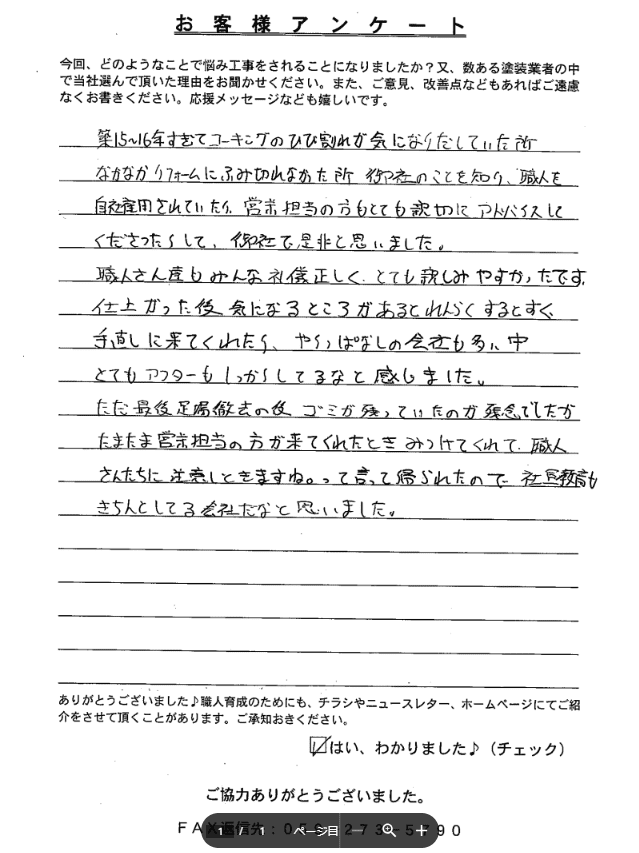 お客様アンケート
今回、どのようなことで悩み工事をされることになりましたか？又、数ある塗装業者の中
で当社選んで頂いた理由をお聞かせください。また、ご意見、改善点などもあればご遠慮
なくお書きください。応援メッセージなども嬉しいです。
築15~16年すぎてコーキングのひび割れが気になりだしていた所
なかなかリフォームにふみ切れなかった所 御社のことを知り、職人を
自社雇用されていたり、営業担当の方もとても親切に アドバイスして
くださったりして、御社で是非と思いました。
職人さん達もみんな礼儀正しく、とても親しみやすかったです。
仕上がった後 気になるところがあるとれんらくするとすぐ
手直しに来てくれたり、やりっぱなしの会社も多い中
とてもアフターもしっかりしてるなと感じました。
ただ最後足場撤去の後 ゴミが残っていたのが残念でしたが
たまたま営業担当の方が来てくれたとき みつけてくれて、職人
さんたちに注意しときますね。って言って帰られたので 社員教育も
きちんとしてる会社だなと思いました。
ありがとうございました♪職人育成のためにも、チラシやニュースレター、ホームページにてご紹
介をさせて頂くことがあります。ご承知おきください。
はい、わかりました♪（チェック）
ご協力ありがとうございました。
FAX返信先：
1 / 1 ページ目